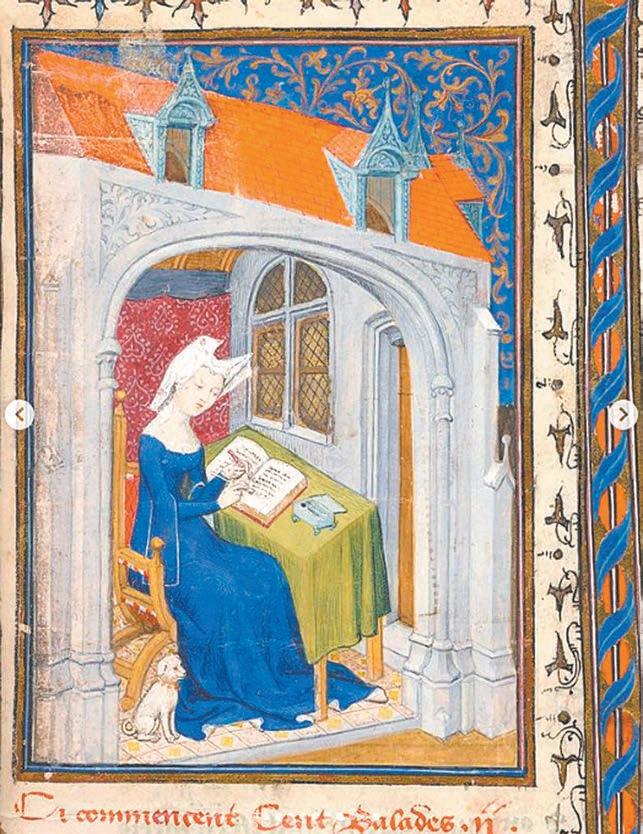 Ci commencent Cent Balades.